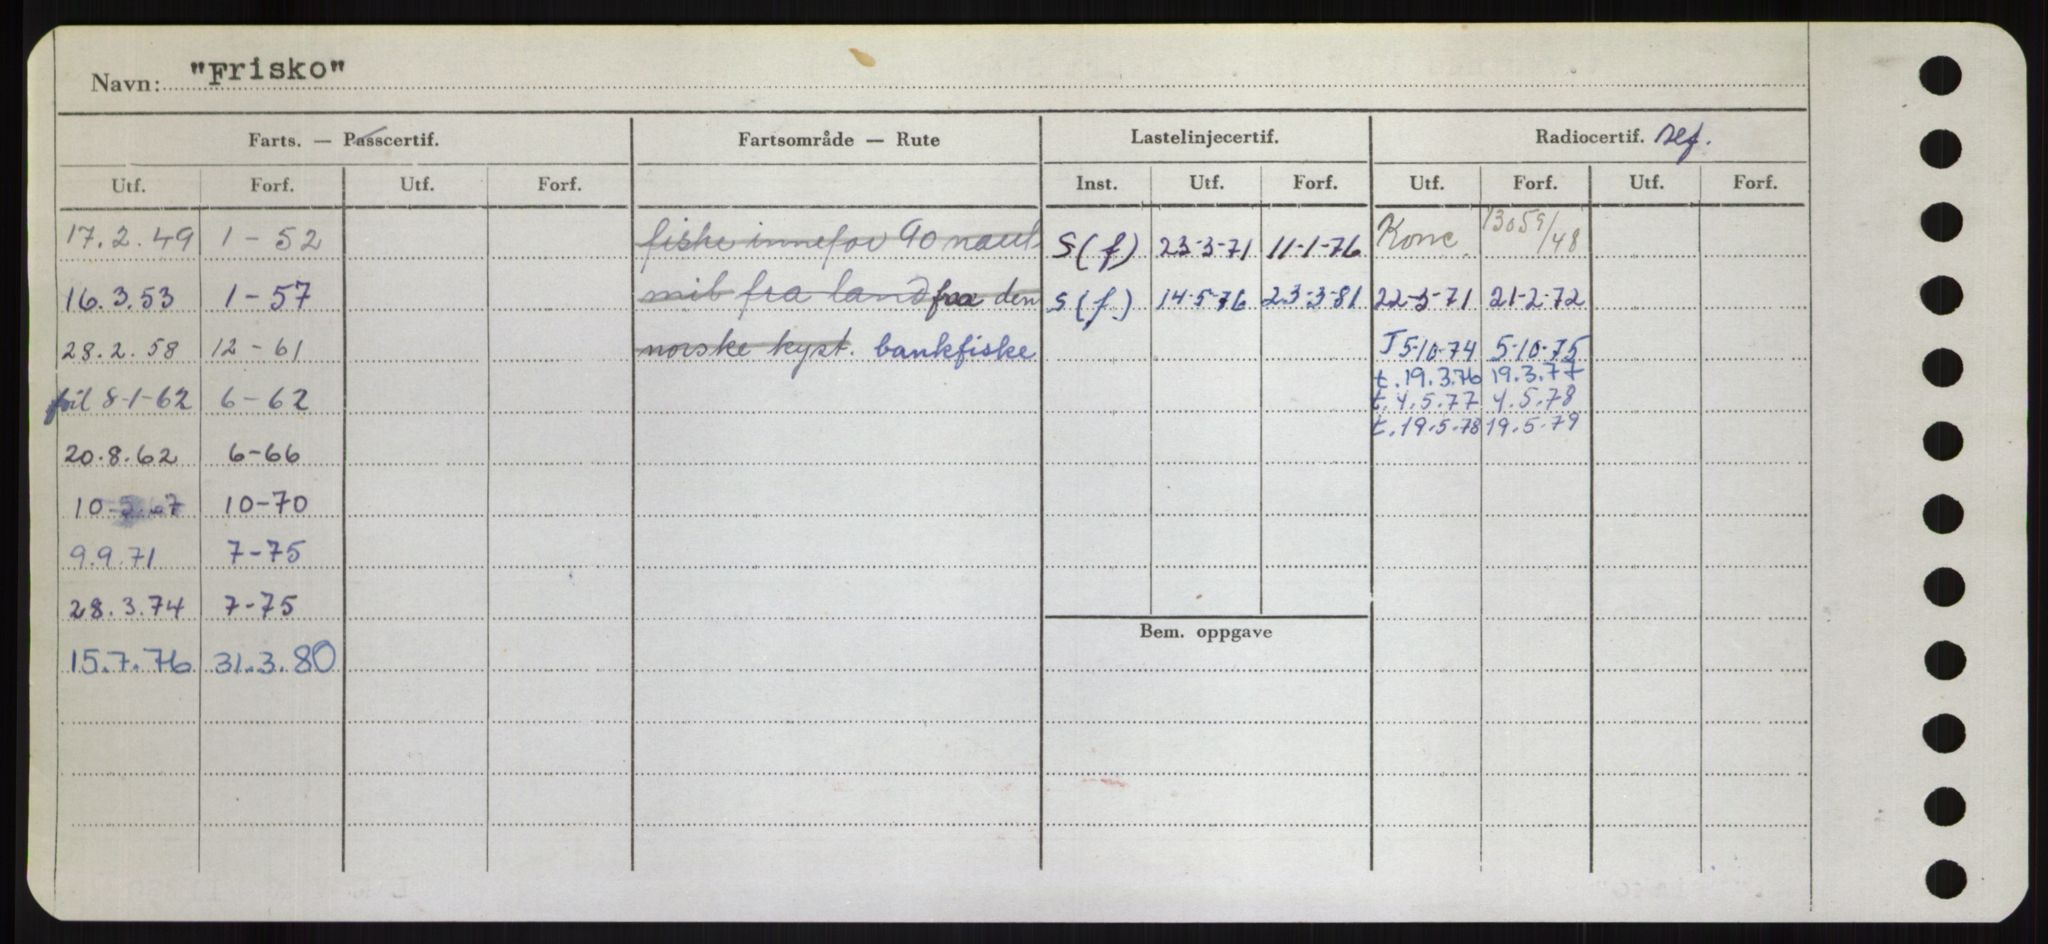 Navn: "Frisko"
Farts. — Passcertif. Fartsområde — Rute Lastelinjecertif. Radiocertif. sef.
Utf. Forf. Utf. Forf. Inst. Utf. Forf. Utf. Forf. Utf. Forf.
17.2.49 1-52 fiske innefor 90 naut S(f) 23-3-71 11-1-76 Konc. 13059/48
16.3.53 1-57 mil fra land fra den S(f) 14-5-76 23-3-81 22-3-71 21-2-72
28.2.58 12-61 norske kyst. bankfiske T 5-10-74 5-10-75
t.19.3.76 19.3.77
8-1-62 6-62 t.4.5.77 4.5.78
t.19.5.78 19.5.79
20.8.62 6-66
10 10-70
9.9.71 7-75
28.3.74 7-75
Bem. oppgave
15.7.76 31.3.80